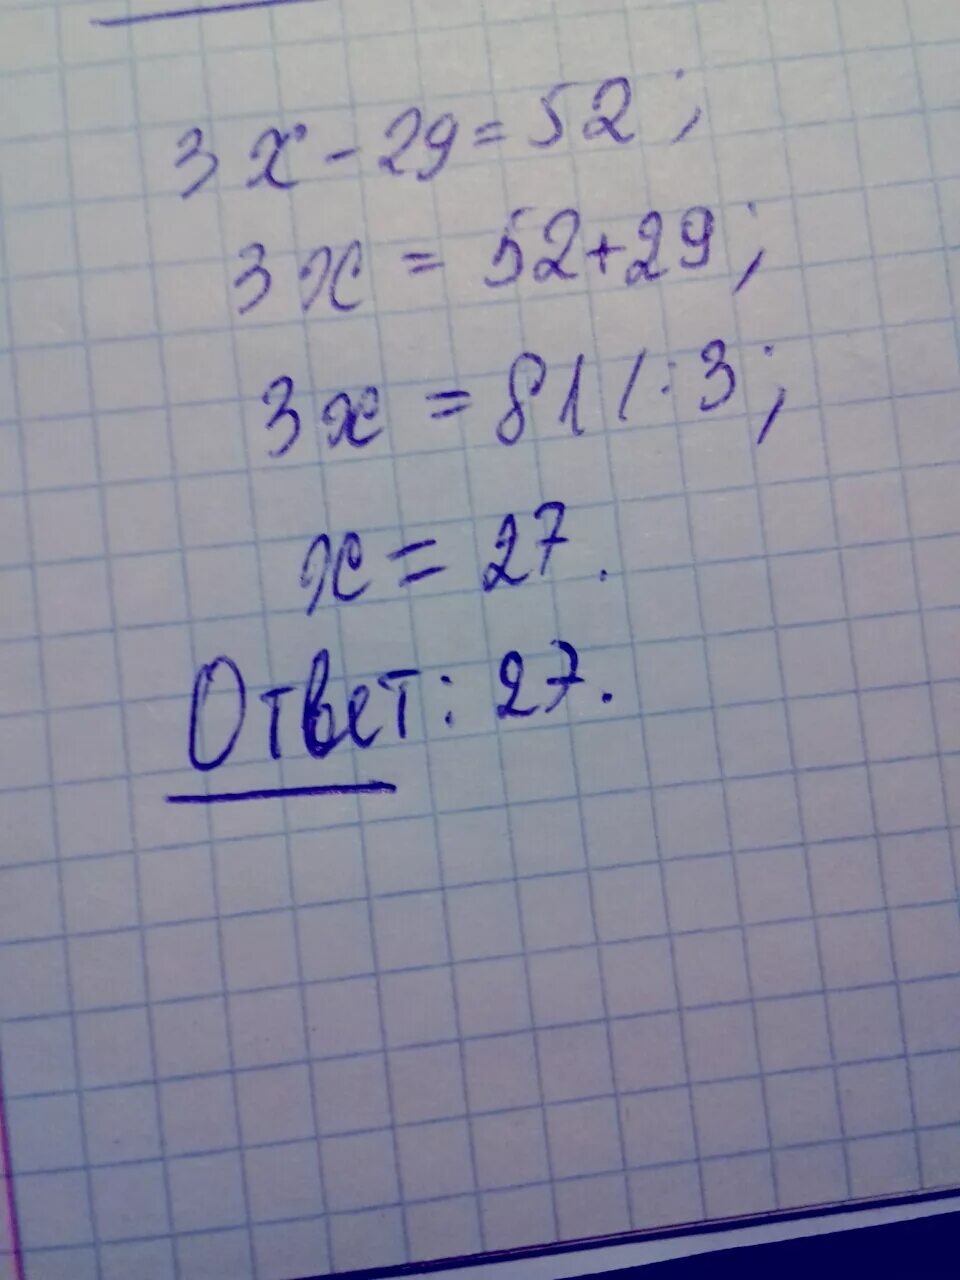 3x - 29 = 52;
3x = 52 + 29;
3x = 81 | : 3;
x = 27.
Ответ: 27.